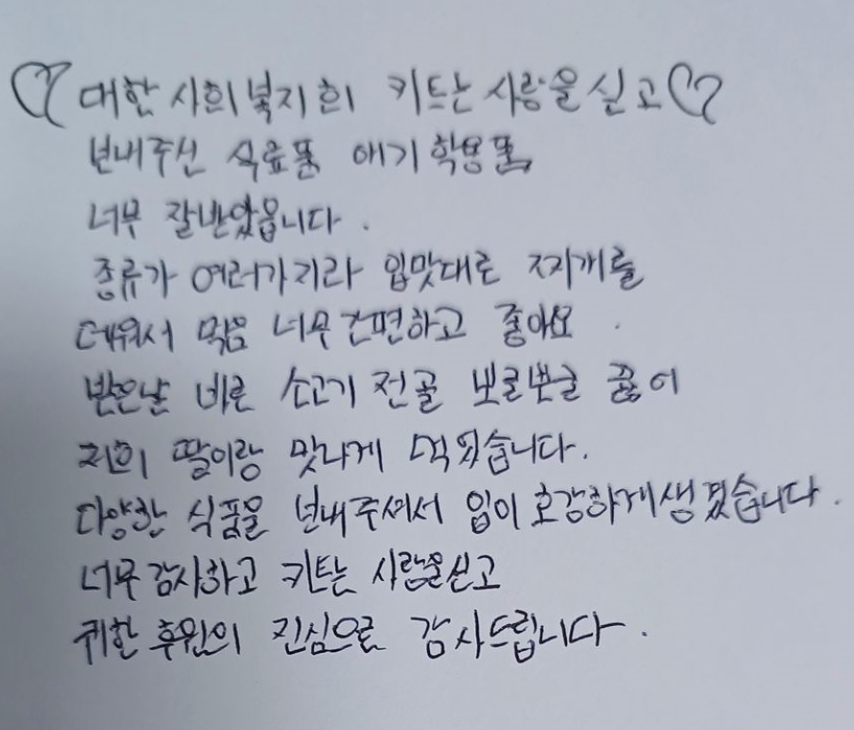 ♡ 대한사회복지회 키트는 사랑을 싣고 ♡
보내주신 식료품 애기 학용품
너무 잘받았읍니다.
종류가 여러가지라 입맛대로 찌게를
데워서 먹음 너무 간편하고 좋아요.
받은날 바른 소고기 전골 보글보글 끓여
저희 딸이랑 맛나게 먹었습니다.
다양한 식품을 보내주셔서 입이 호강하게 생겼습니다.
너무 감사하고 키트는 사랑을싣고
귀한 후원의 진심으로 감사드립니다.